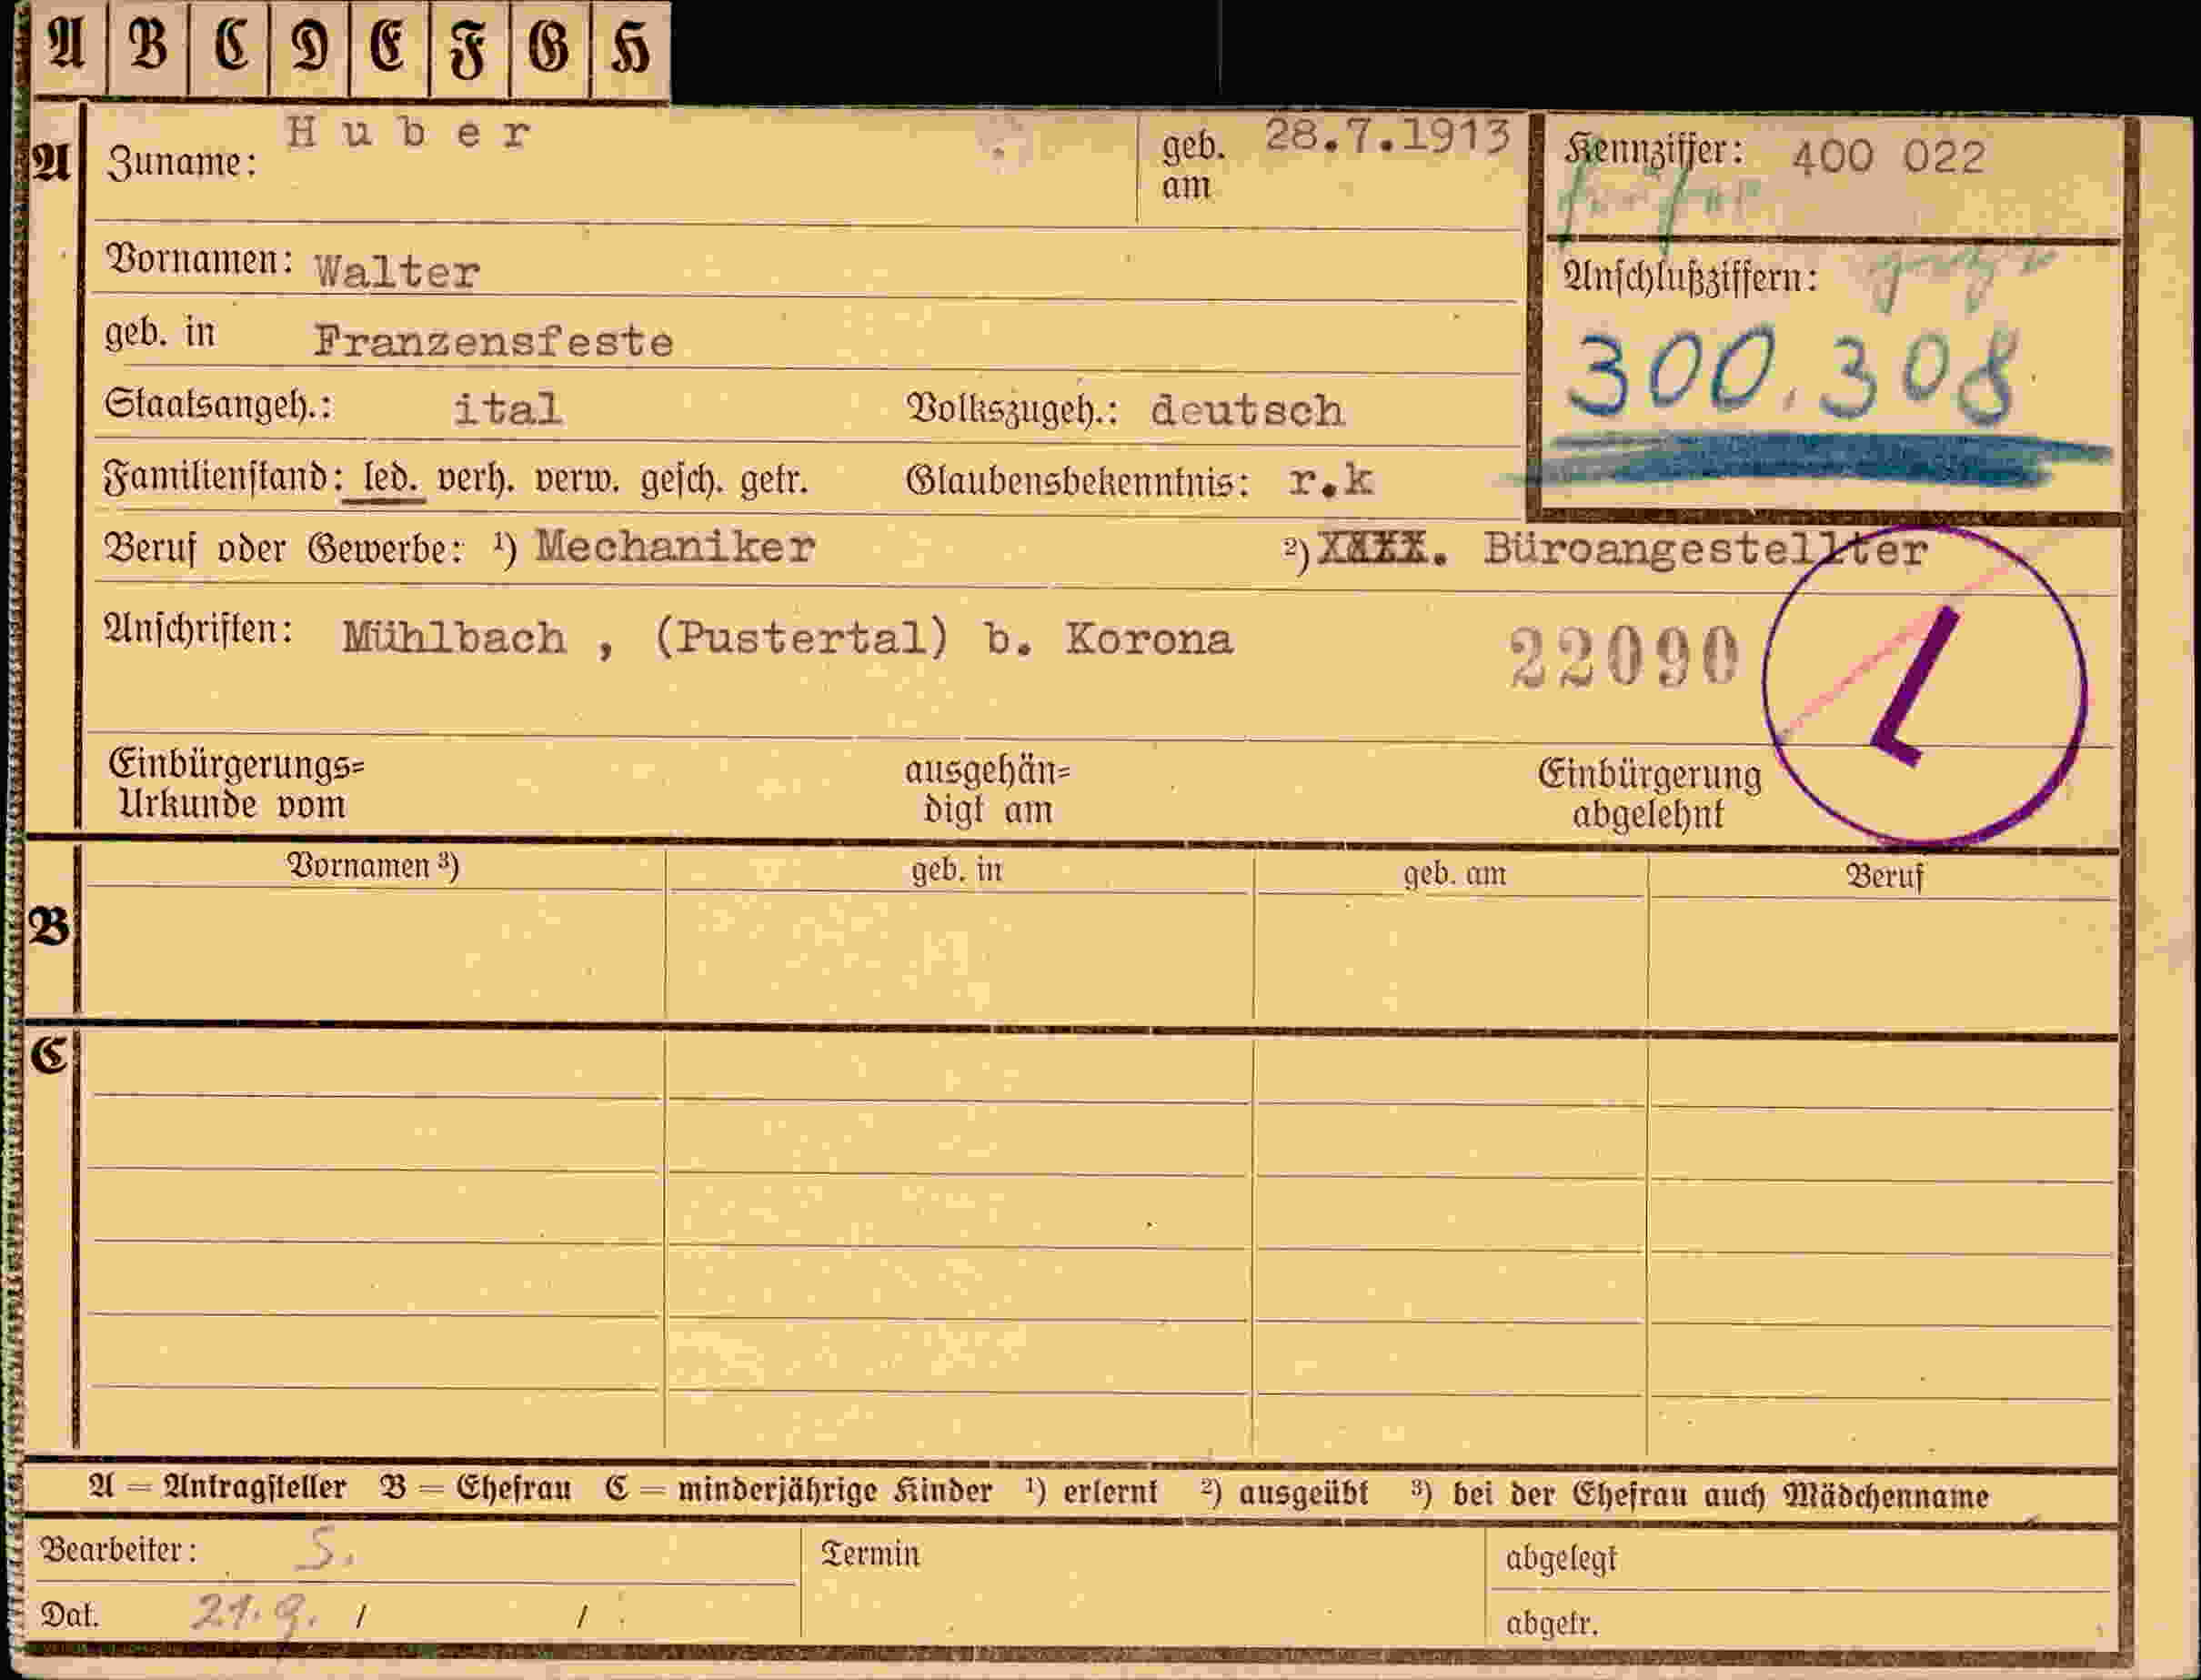 A B C D E F G H
A Zuname: Huber geb. am 28.7.1913 Kennziffer: 400 022
Vornamen: Walter
Anschlußziffern:
geb. in Franzensfeste
300.308
Staatsangeh.: ital Volkszugeh.: deutsch
Familienstand: led. verh. verw. gesch. getr. Glaubensbekenntnis: r.k
Beruf oder Gewerbe: ¹) Mechaniker ²) XXXX. Büroangestellter
Anschriften: Mühlbach , (Pustertal) b. Korona 22090 L
Einbürgerungs= ausgehän= Einbürgerung
Urkunde vom digt am abgelehnt
Vornamen ³) geb. in geb. am Beruf
B
C
A = Antragsteller B = Ehefrau C = minderjährige Kinder ¹) erlernt ²) ausgeübt ³) bei der Ehefrau auch Mädchenname
Bearbeiter: S. Termin abgelegt
Dat. 21.9. / / abgetr.